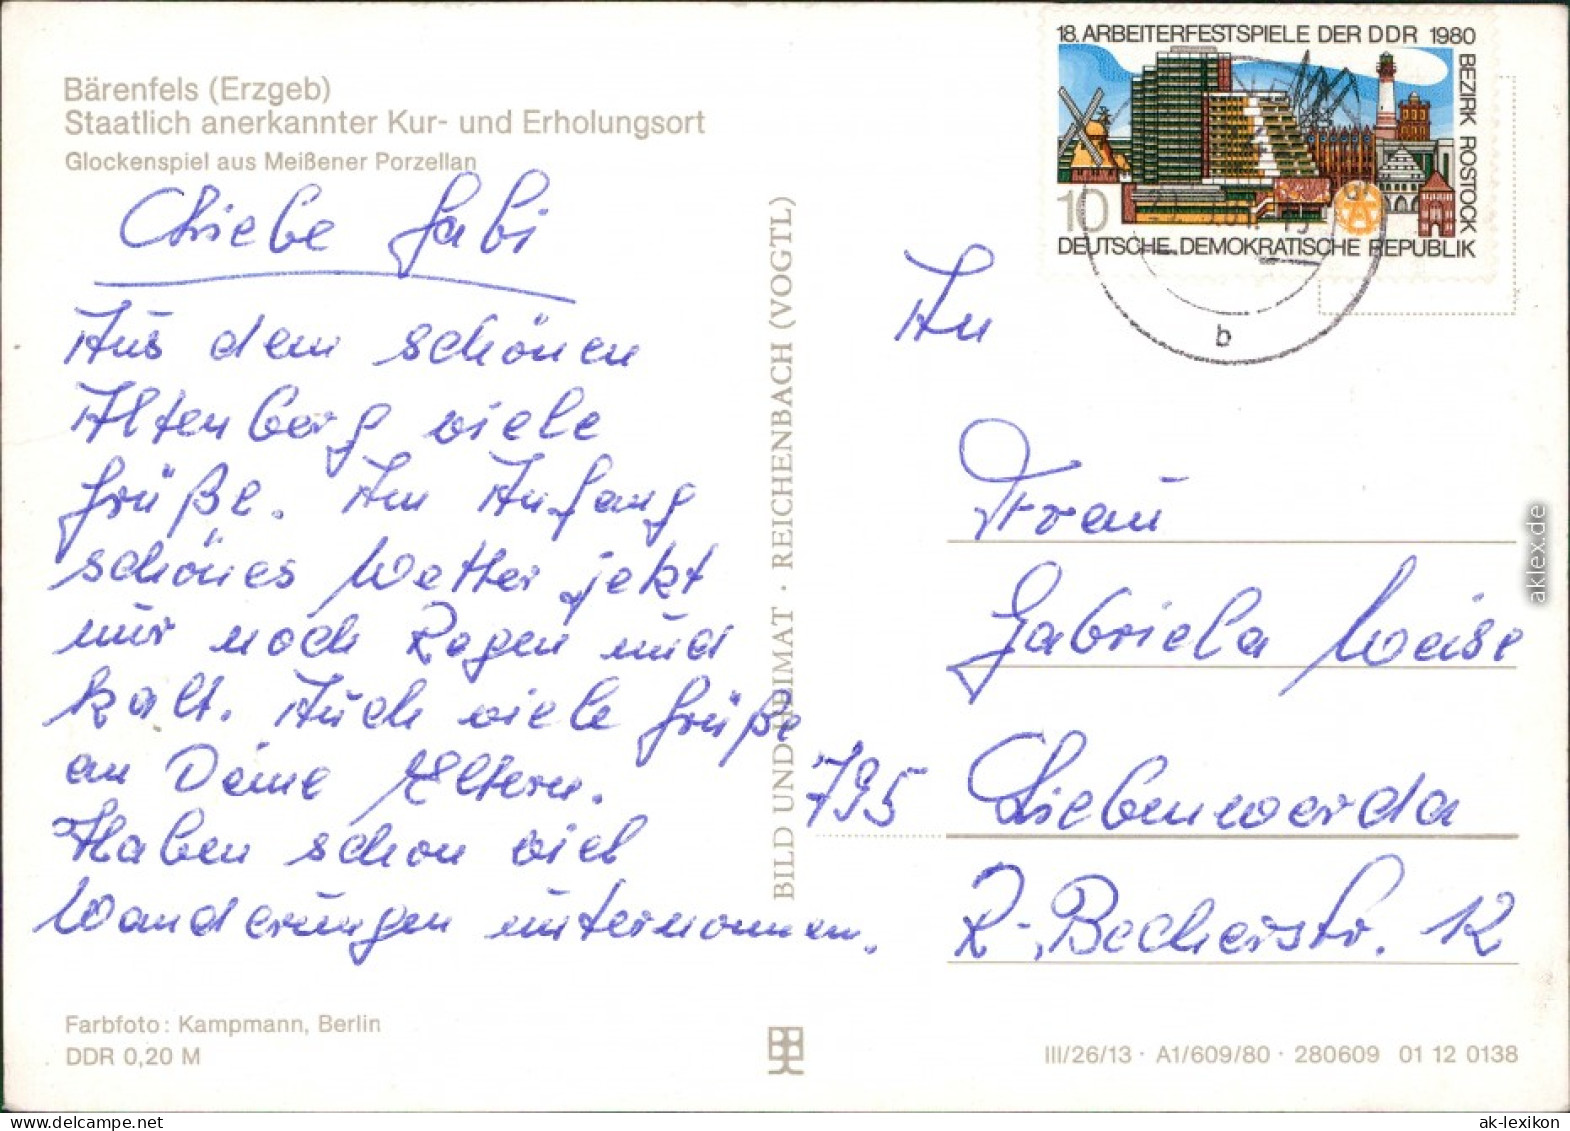 Bärenfels (Erzgeb)
Staatlich anerkannter Kur- und Erholungsort
Glockenspiel aus Meißener Porzellan
Liebe Gabi
Aus dem schönen
Altenberg viele
Grüße. Am Anfang
schönes Wetter jetzt
nur noch Regen und
kalt. Auch viele Grüße
an Deine Eltern.
Haben schon viel
Wanderungen unternommen.
Farbfoto: Kampmann, Berlin
DDR 0,20 M
BILD UND HEIMAT · REICHENBACH (VOGTL)
18. ARBEITERFESTSPIELE DER DDR 1980
BEZIRK ROSTOCK
10
DEUTSCHE DEMOKRATISCHE REPUBLIK
b
An
Frau
Gabriela Weise
795 Liebenwerda
R.-Becherstr. 12
III/26/13 · A1/609/80 · 280609 01 12 0138
aklex.de
ak-lexikon